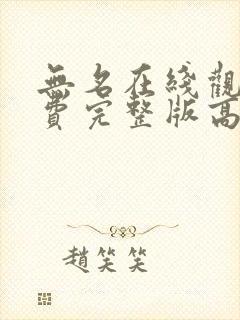 無名在綫觀
費完整版高
趙笑笑